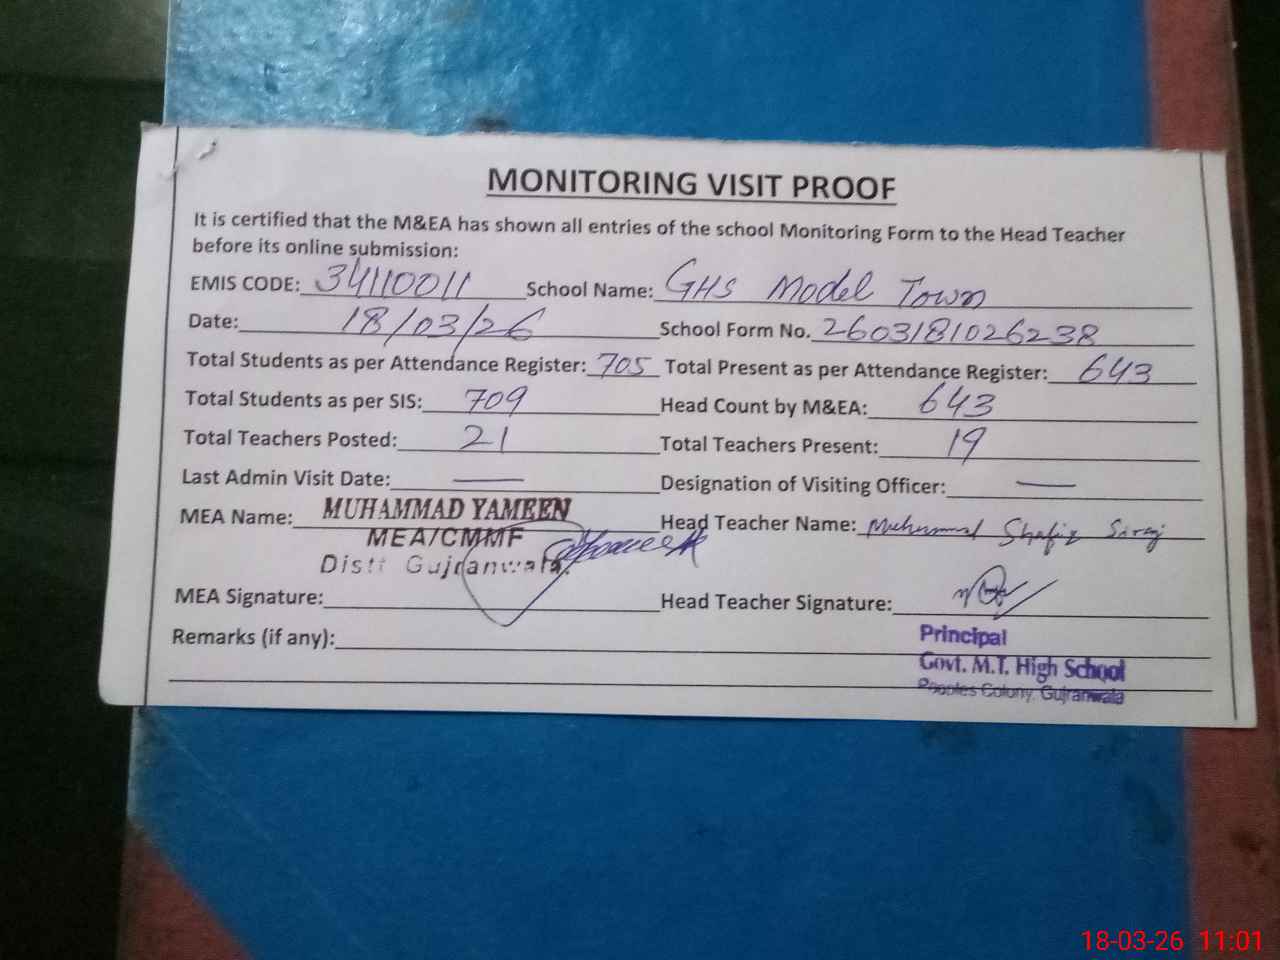 MONITORING VISIT PROOF
It is certified that the M&EA has shown all entries of the school Monitoring Form to the Head Teacher
before its online submission:
EMIS CODE: 34110011 School Name: GHS Model Town
Date: 18/03/26 School Form No. 2603181026238
Total Students as per Attendance Register: 705 Total Present as per Attendance Register: 643
Total Students as per SIS: 709 Head Count by M&EA: 643
Total Teachers Posted: 21 Total Teachers Present: 19
Last Admin Visit Date: — Designation of Visiting Officer: —
MEA Name: MUHAMMAD YAMEEN Head Teacher Name: Muhammad Shafiq
MEA/CMMF
Distt Gujranwala.
MEA Signature: Head Teacher Signature:
Remarks (if any):
Principal
Govt. M.T. High School
Peoples Colony, Gujranwala
18-03-26 11:01